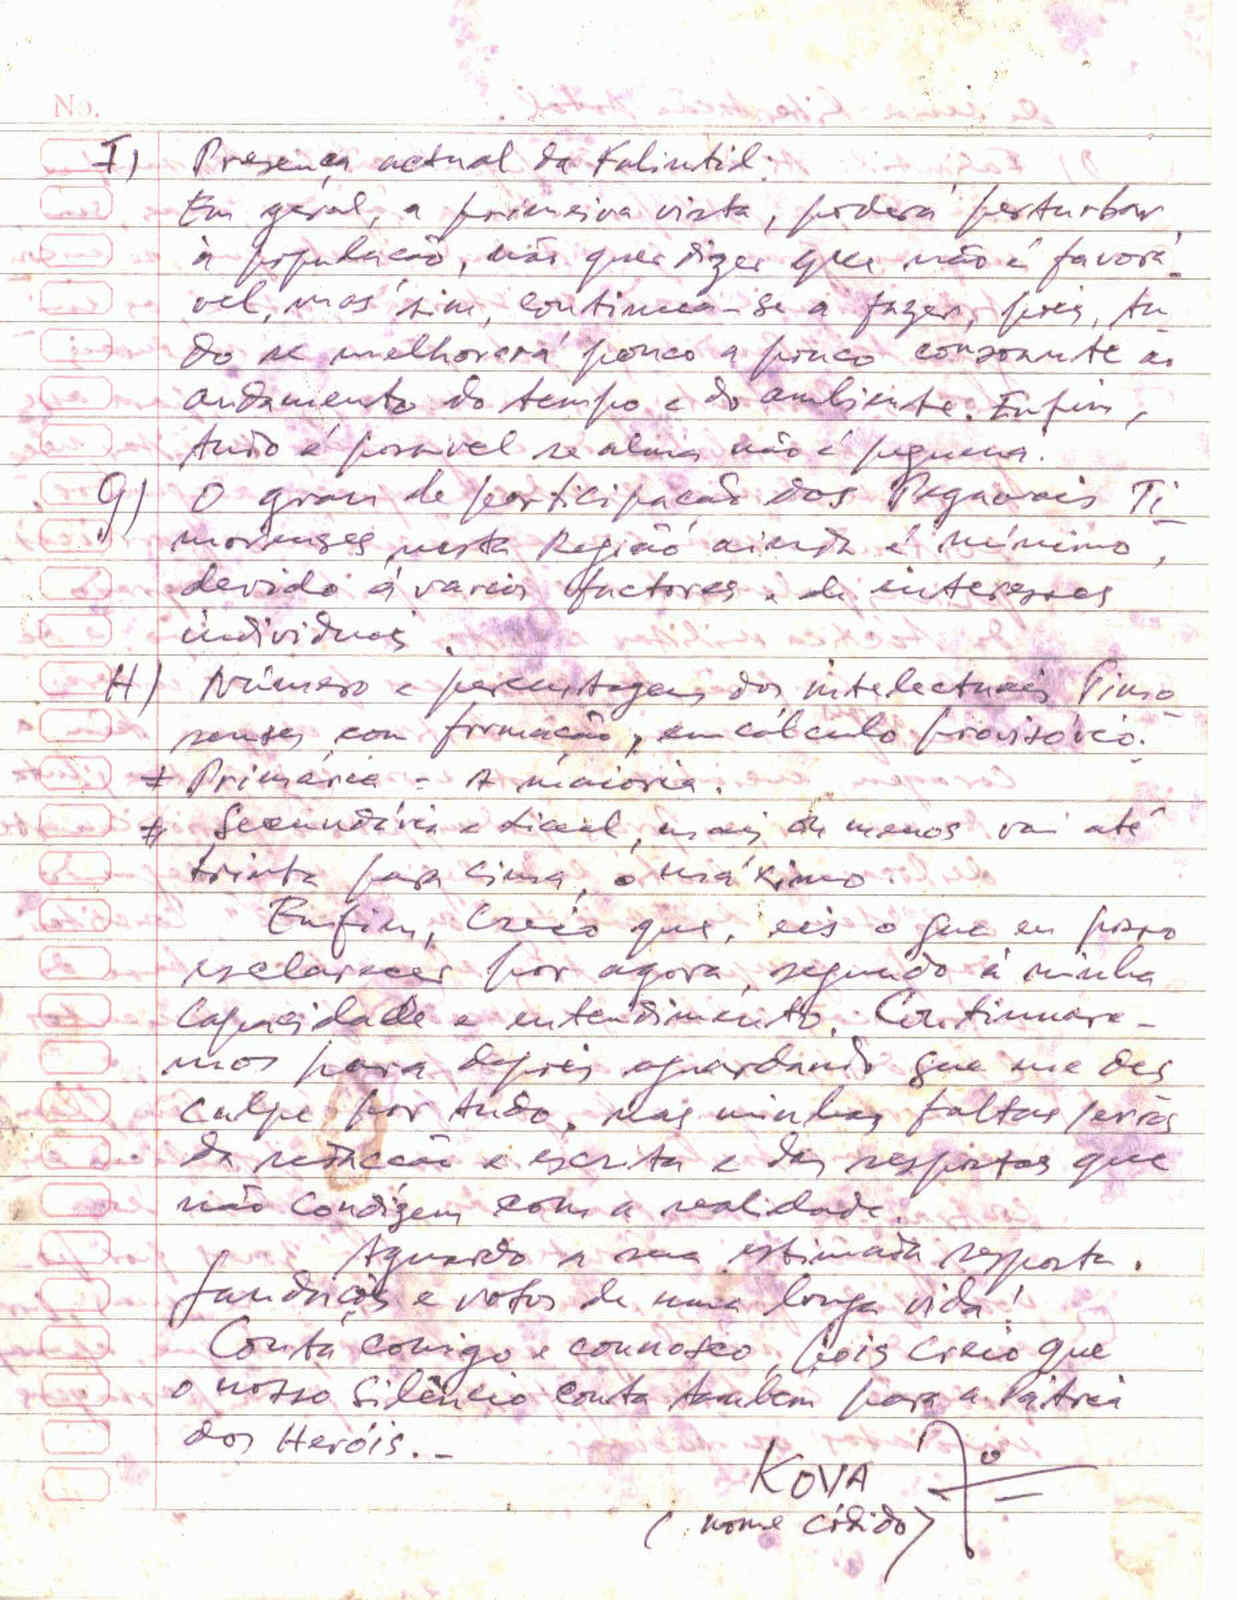 F) Presença actual da Falintil:
Em geral, a primeira vista, poderá perturbar
à população, não quer dizer que não é favorá-
vel, mas sim, continua-se a fazer, pois, tu-
do se melhorará pouco a pouco consoante ao
andamento do tempo e do ambiente. Enfim,
tudo é possível se alma não é pequena.
G) O grau de participação dos Ti-
morenses nesta Região ainda é mínimo,
devido á varios factores e de interesses
individuais.
H) Número e percentagem dos intelectuais Timo-
renses com formação, em cálculo provisório:
* Primária = A maioria.
* Secundária e Liceal, mais ou menos vai até
trinta para cima, o máximo.
Enfim, Creio que, eis o que eu posso
esclarecer por agora, segundo à minha
Capacidade e entendimento. Continuare-
mos para depois aguardando que me des
culpe por tudo, nas minhas faltas
da redacção e escrita e das respostas que
não condizem com a realidade.
Aguardo a sua estimada resposta.
Saudações e votos de uma longa vida!
Conta comigo e connosco, pois creio que
o nosso Silêncio conta tambem para a Pátria
dos Heróis. -
KOVA
(nome códido)